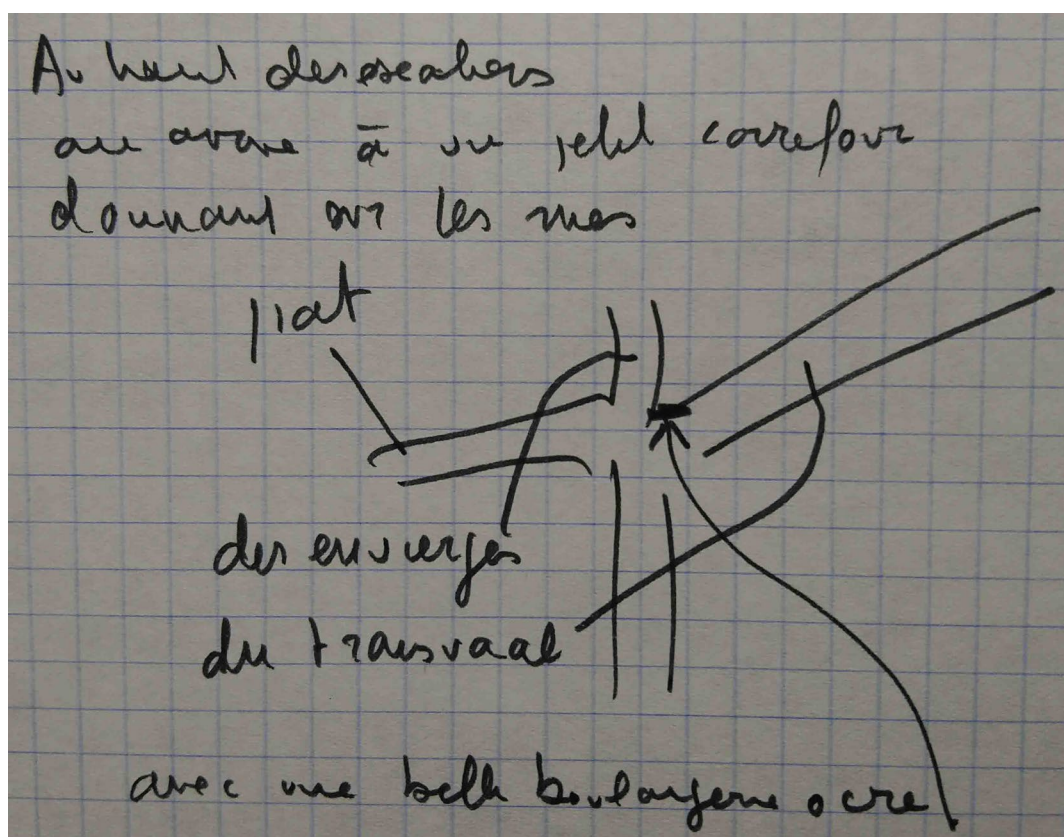 Au haut des escaliers
on arrive à un petit carrefour
donnant sur les rues
piat
des envierges
du transvaal
avec une belle boulangerie ocre